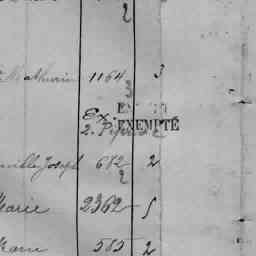 2
Mathurin 1164 3
3
Ex.
EXEMPTÉ
2.
ville Joseph 682 2
2
Marie 2362 5
585 2